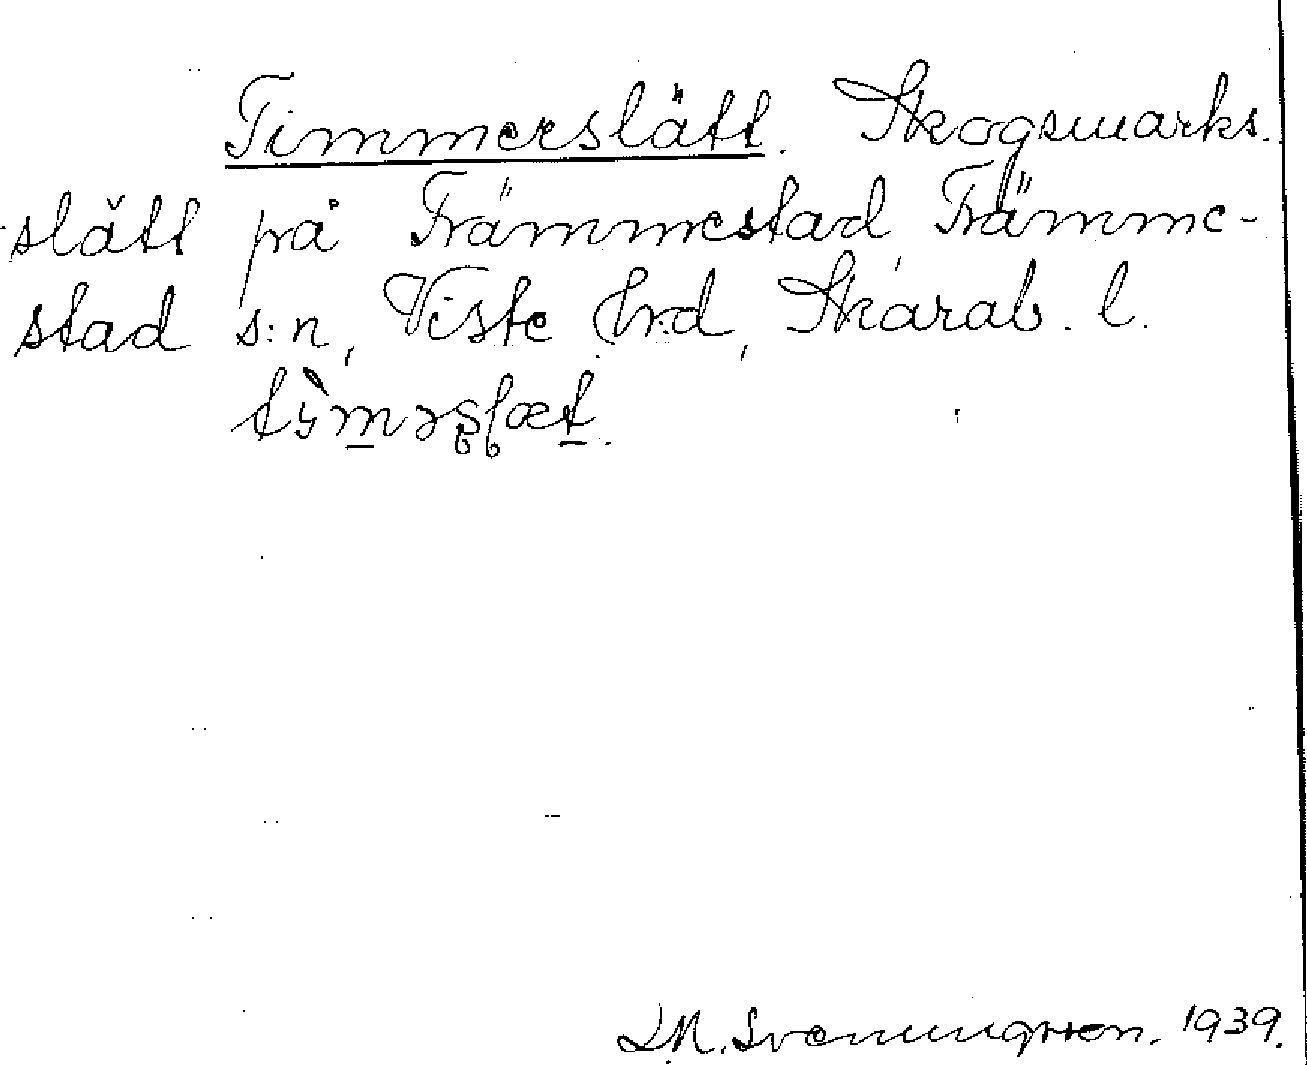 Timmerslätt. Skogsmarks-
slätt på Främmestad, Främme-
stad s:n, Viste hrd, Skarab. l.
J.N. Svenungsson. 1939.